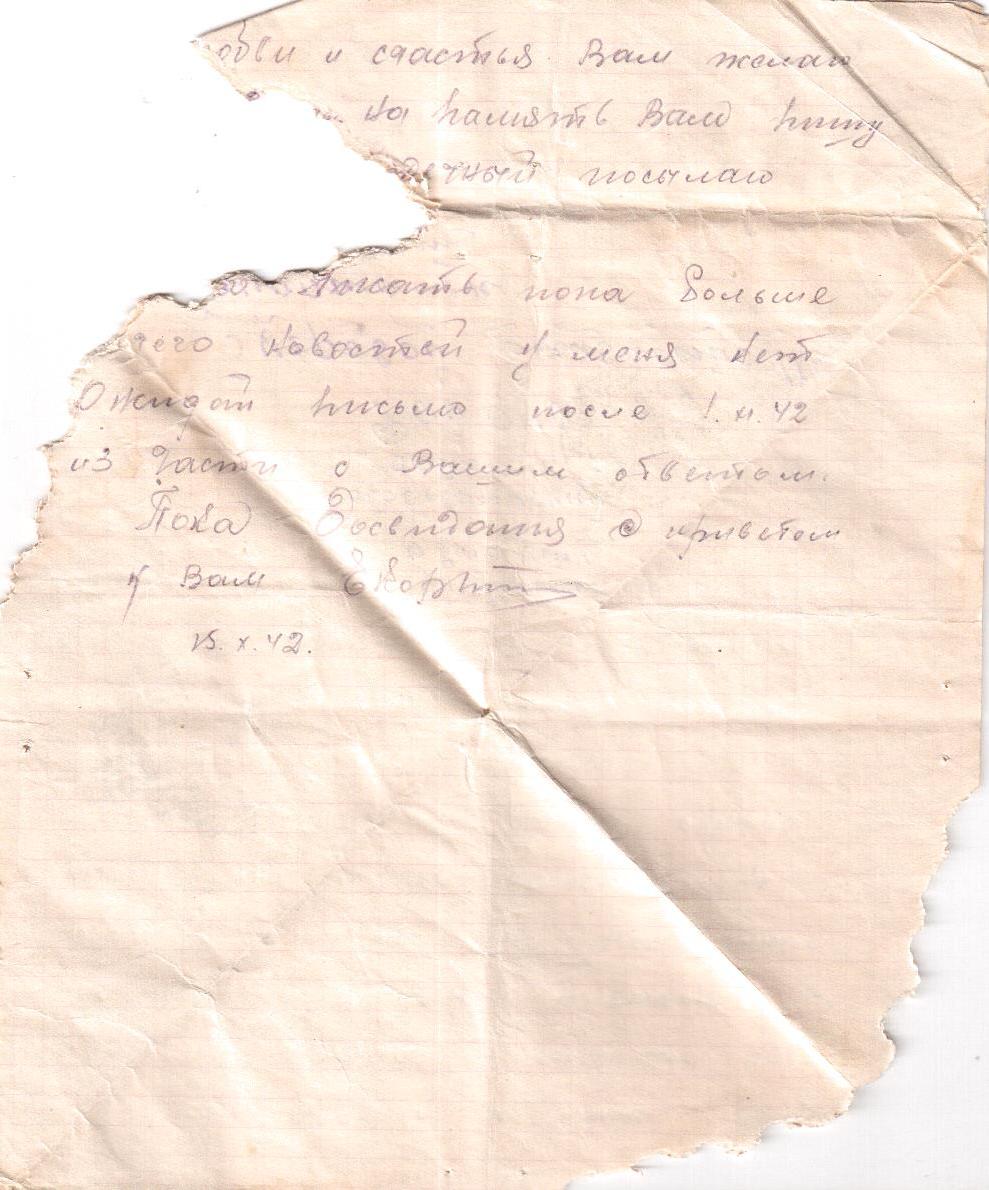 юбви и счастья Вам желаю
на память Вам пишу
дечный посылаю
пока больше
чего новостей у меня нет
Ожидай письмо после 1.XI.42
из части с Вашим ответом.
Пока Досвидания с приветом
к Вам
15.X.42.